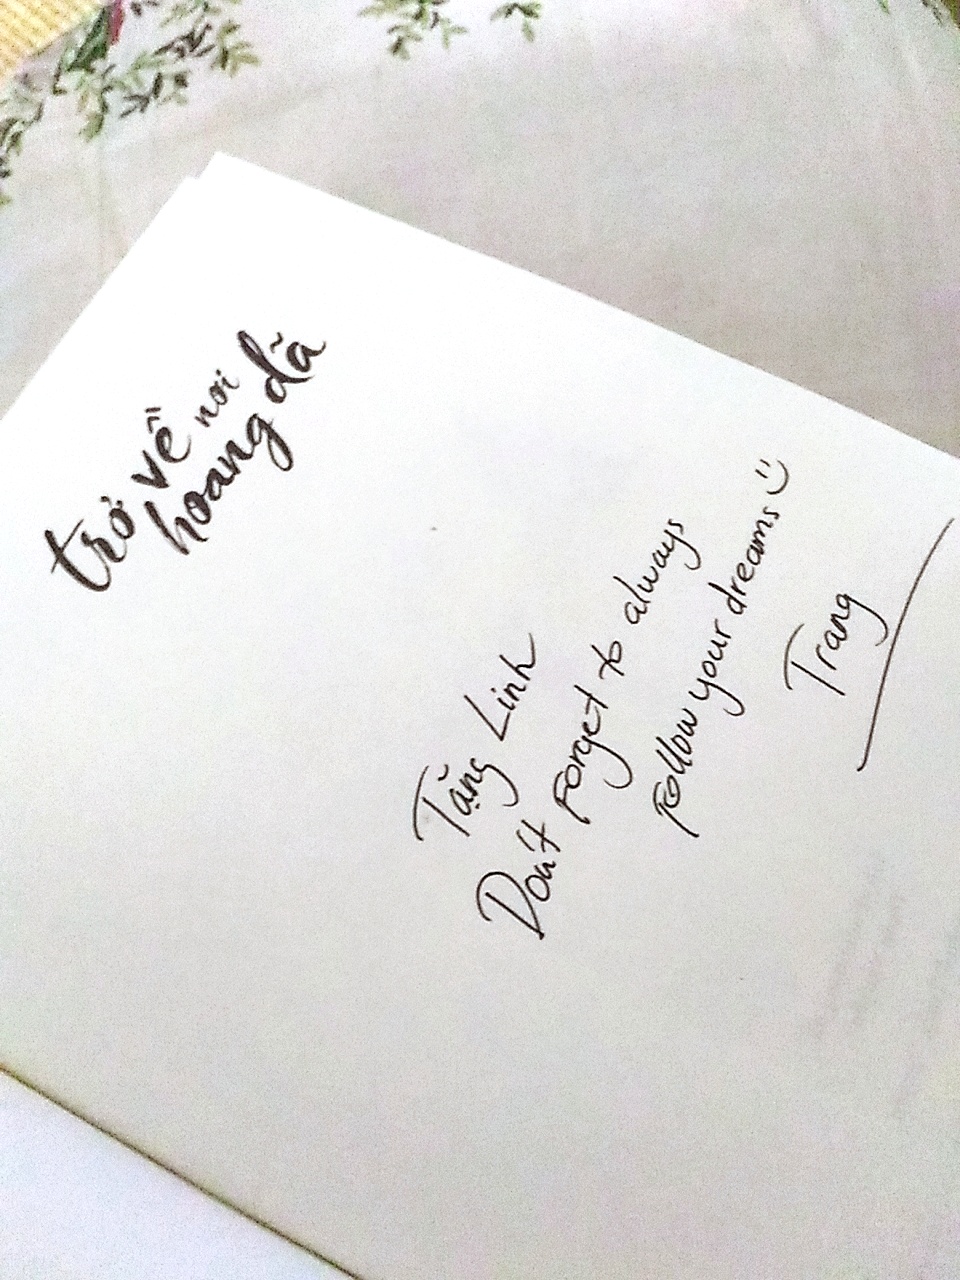 trở về nơi
hoang dã
Tặng Linh
Don't forget to always
follow your dreams
Trang